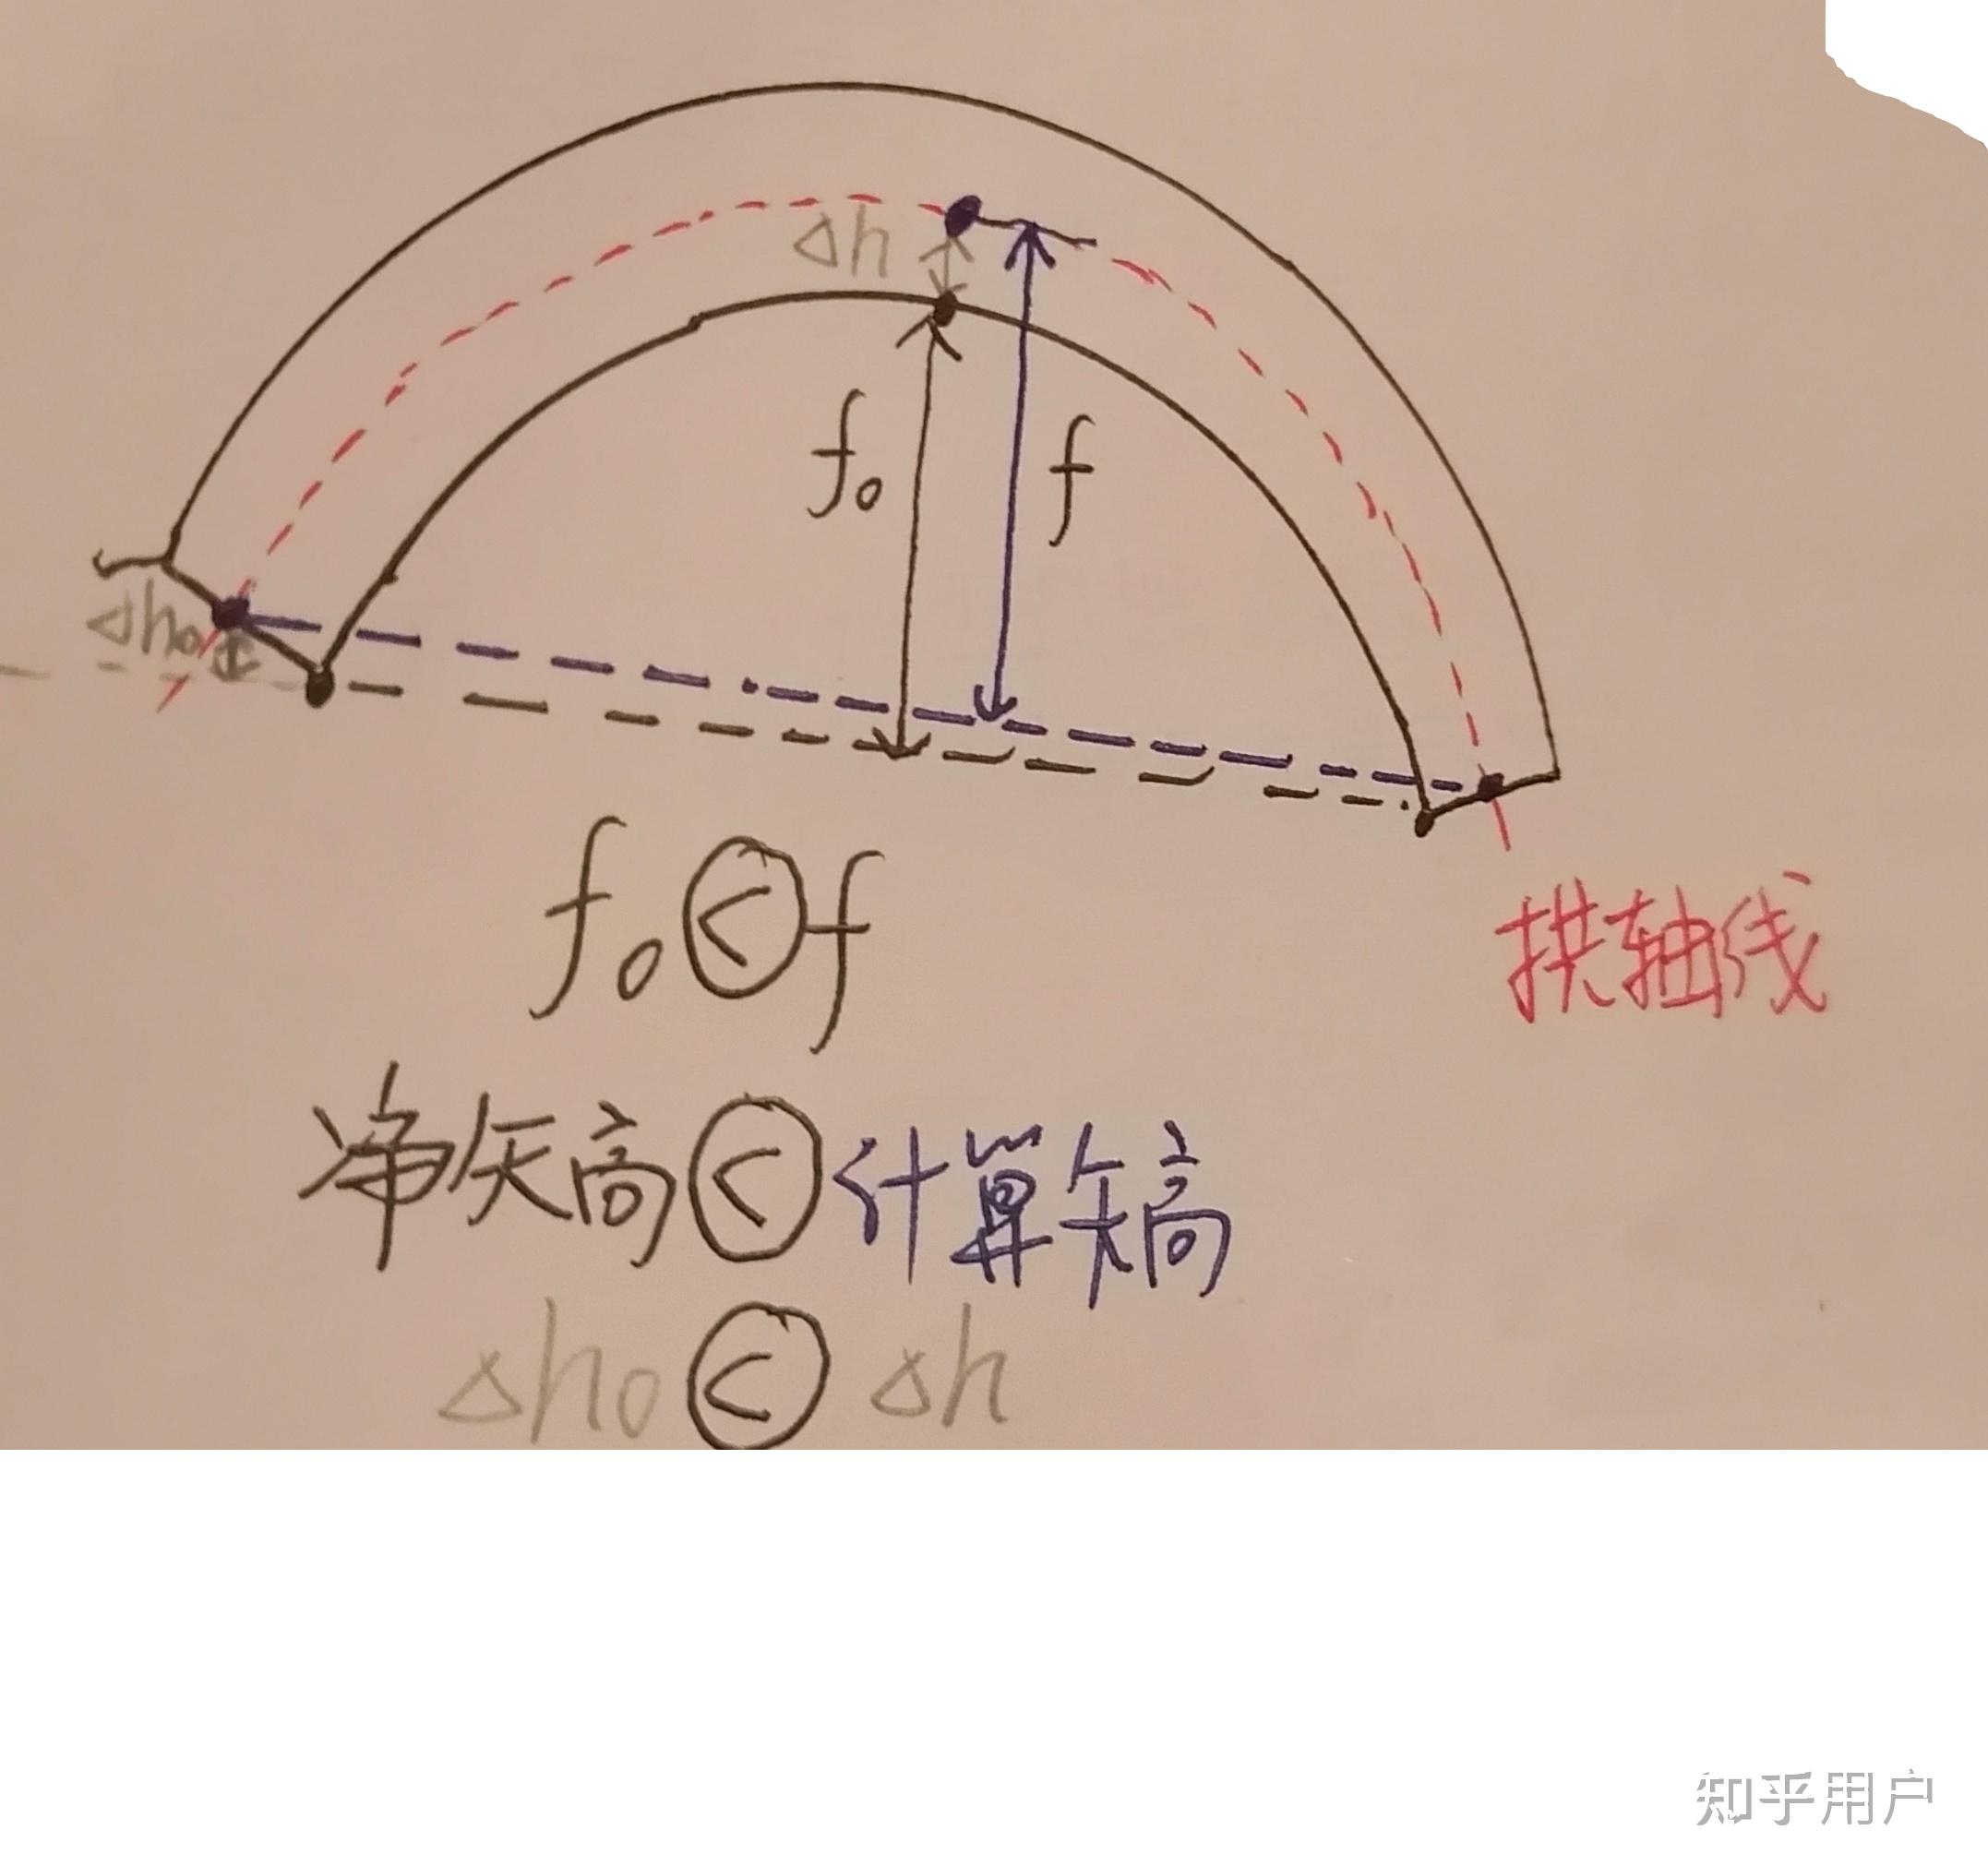 Δh
f₀
f
Δh₀
f₀ < f
拱轴线
净矢高 < 计算矢高
Δh₀ < Δh
知乎用户